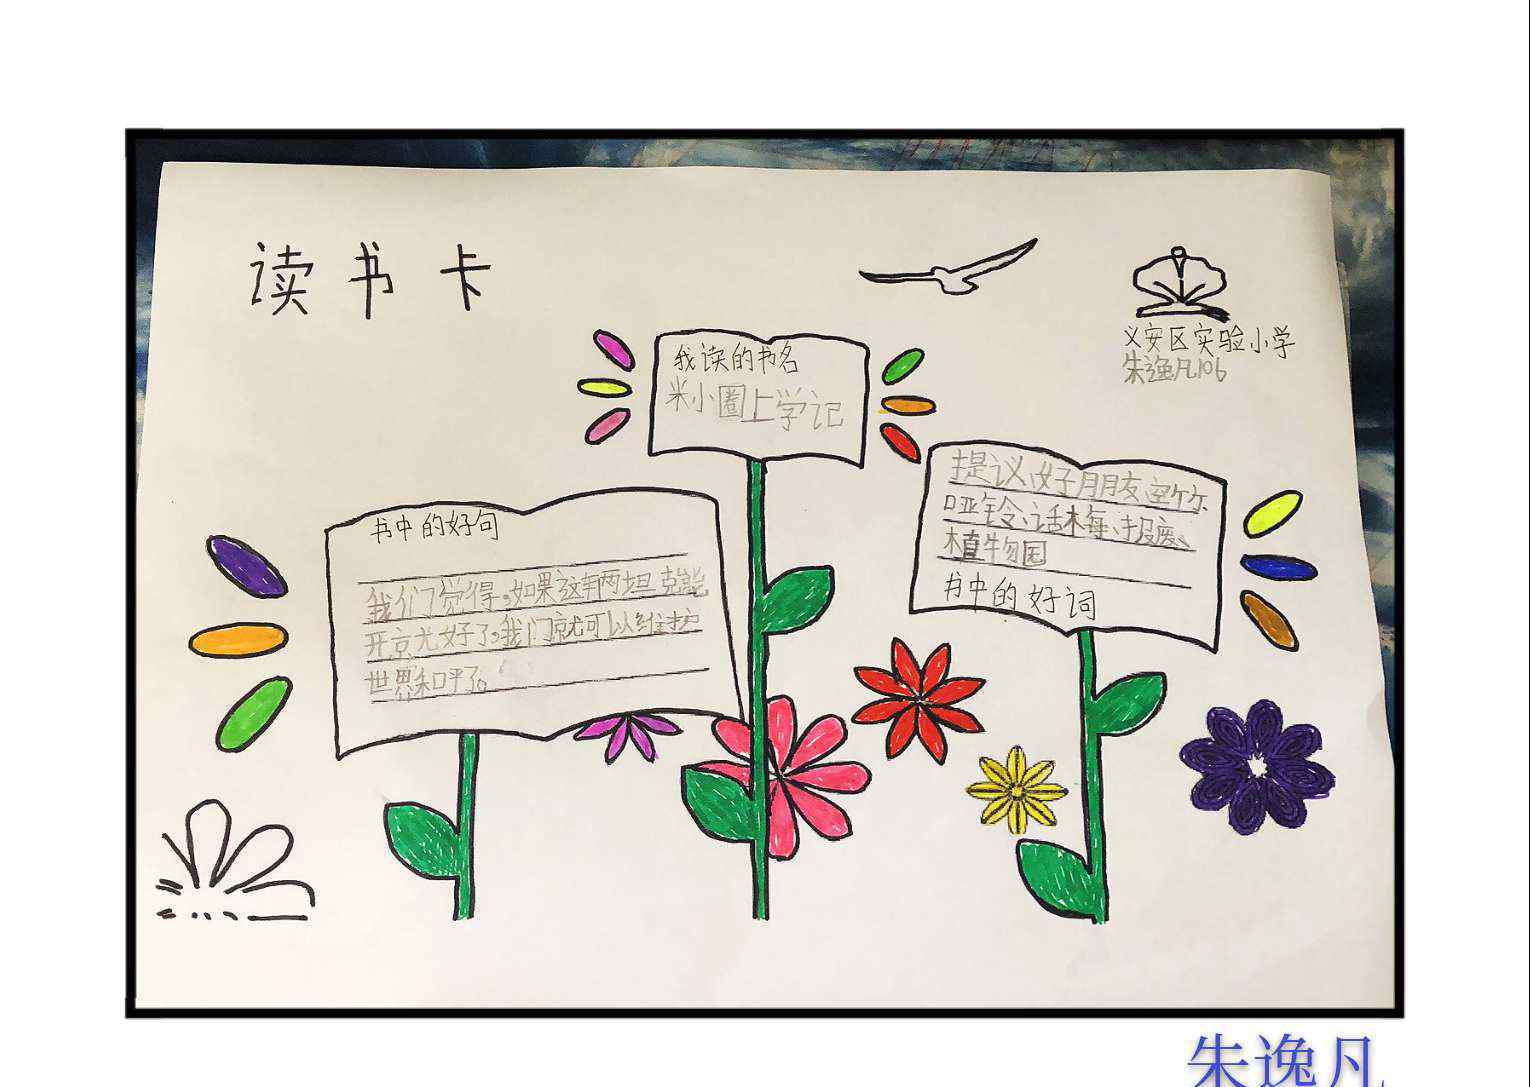 读书卡
义安区实验小学
朱逸凡106
我读的书名
米小圈上学记
书中的好句
我们觉得。如果这辆两坦克能
开京尤好了。我门就可以维护
世界和平了。
提议、好朋友、空竹、
哑铃、话梅、报废、
植物园
书中的好词
朱逸凡